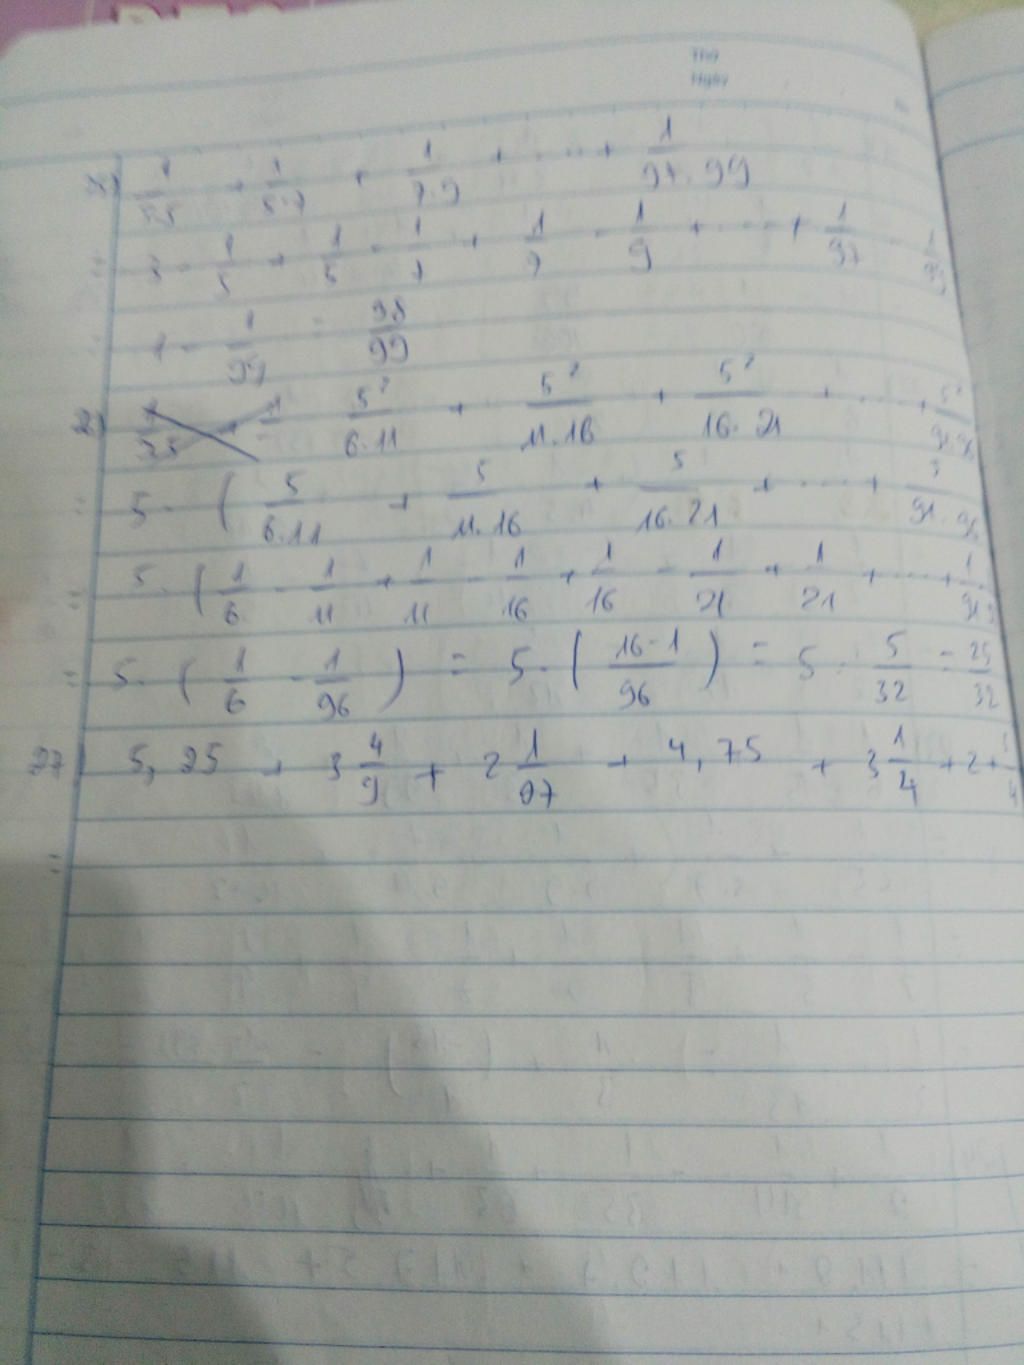 Thứ
Ngày
1) 1/3.5 + 1/5.7 + 1/7.9 + ... + 1/97.99
= 1/5 + 1/5 - 1/7 + 1/9 - 1/9 + ... + 1/97 - 1/99
= 1 - 1/99 = 98/99
2) 5²/6.11 + 5²/11.16 + 5²/16.21 + ... + 5²/91.96
= 5 . ( 5/6.11 + 5/11.16 + 5/16.21 + ... + 5/91.96
= 5 . ( 1/6 - 1/11 + 1/11 - 1/16 + 1/16 - 1/21 + 1/21 + ... + 1/91
= 5 . ( 1/6 - 1/96 ) = 5 . ( 16-1/96 ) = 5 . 5/32 = 25/32
27) 5,25 + 3 4/9 + 2 1/97 + 4,75 + 3 1/4 + 2 +
=